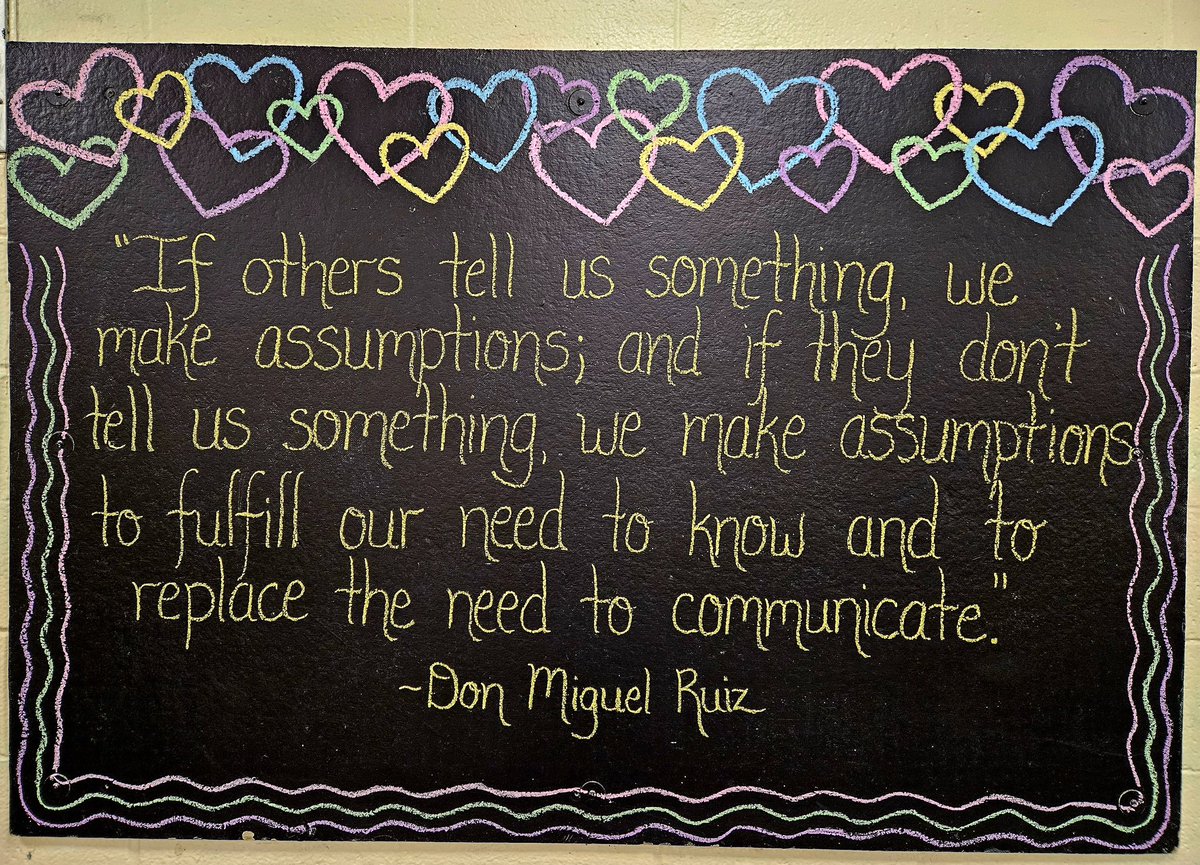 "If others tell us something, we
make assumptions; and if they don't
tell us something, we make assumptions
to fulfill our need to know and to
replace the need to communicate."
~Don Miguel Ruiz